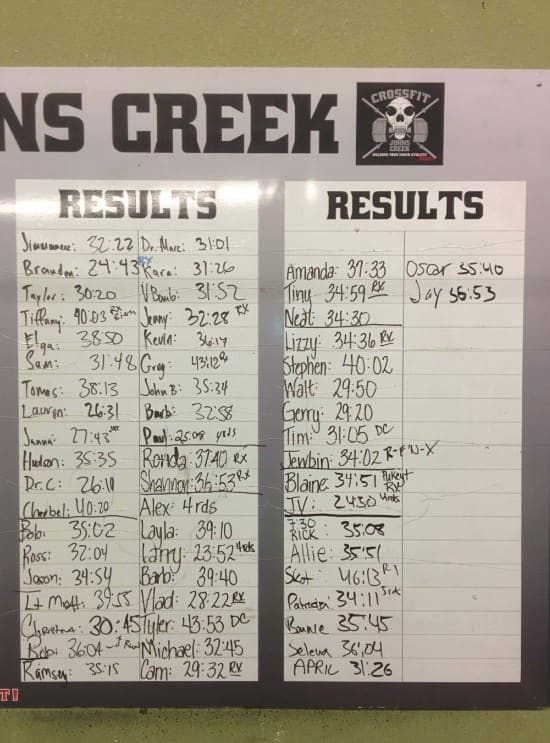 NS CREEK
CROSSFIT
JOHNS
CREEK
RESULTS
32:22
Brandon: 24:43 RX
Taylor: 30:20
Tiffany: 40:03
Elga: 38:50
Sam: 31:48
Tomas: 38:13
Lauren: 26:31
Janna: 27:43
Hudson: 35:35
Dr. C: 26:11
40:20
Bob: 35:02
Ross: 32:04
Jason: 34:54
Lt Matt: 39:55
Christina: 30:45
36:04
Ramsey: 35:15
Dr. Marc: 31:01
Kara: 31:26
VBomb: 31:52
Jenny: 32:28 RX
Kevin: 36:17
Greg: 43:12
John B: 35:34
Barb: 32:58
Paul: 25:08 4rds
Ronda: 37:40 RX
Shannon: 36:53 RX
Alex: 4 rds
Layla: 39:10
Larry: 23:52 4rds
Barb: 39:40
Vlad: 28:22 RX
Tyler: 43:53 DC
Michael: 32:45
Cam: 29:32 RX
RESULTS
Amanda: 37:33
Tiny 34:59 RX
Neal: 34:30
Lizzy: 34:36 RX
Stephen: 40:02
Walt: 29:50
Gerry: 29:20
Tim: 31:05 DC
Jewbin: 34:02
Blaine: 34:51 RX
JV: 24:30 4rds
7:30
RICK : 35:08
Allie: 35:51
46:13
34:11
Bonnie 35:45
Selena 36:04
APRIL 31:26
Oscar 35:40
Jay 36:53
T!